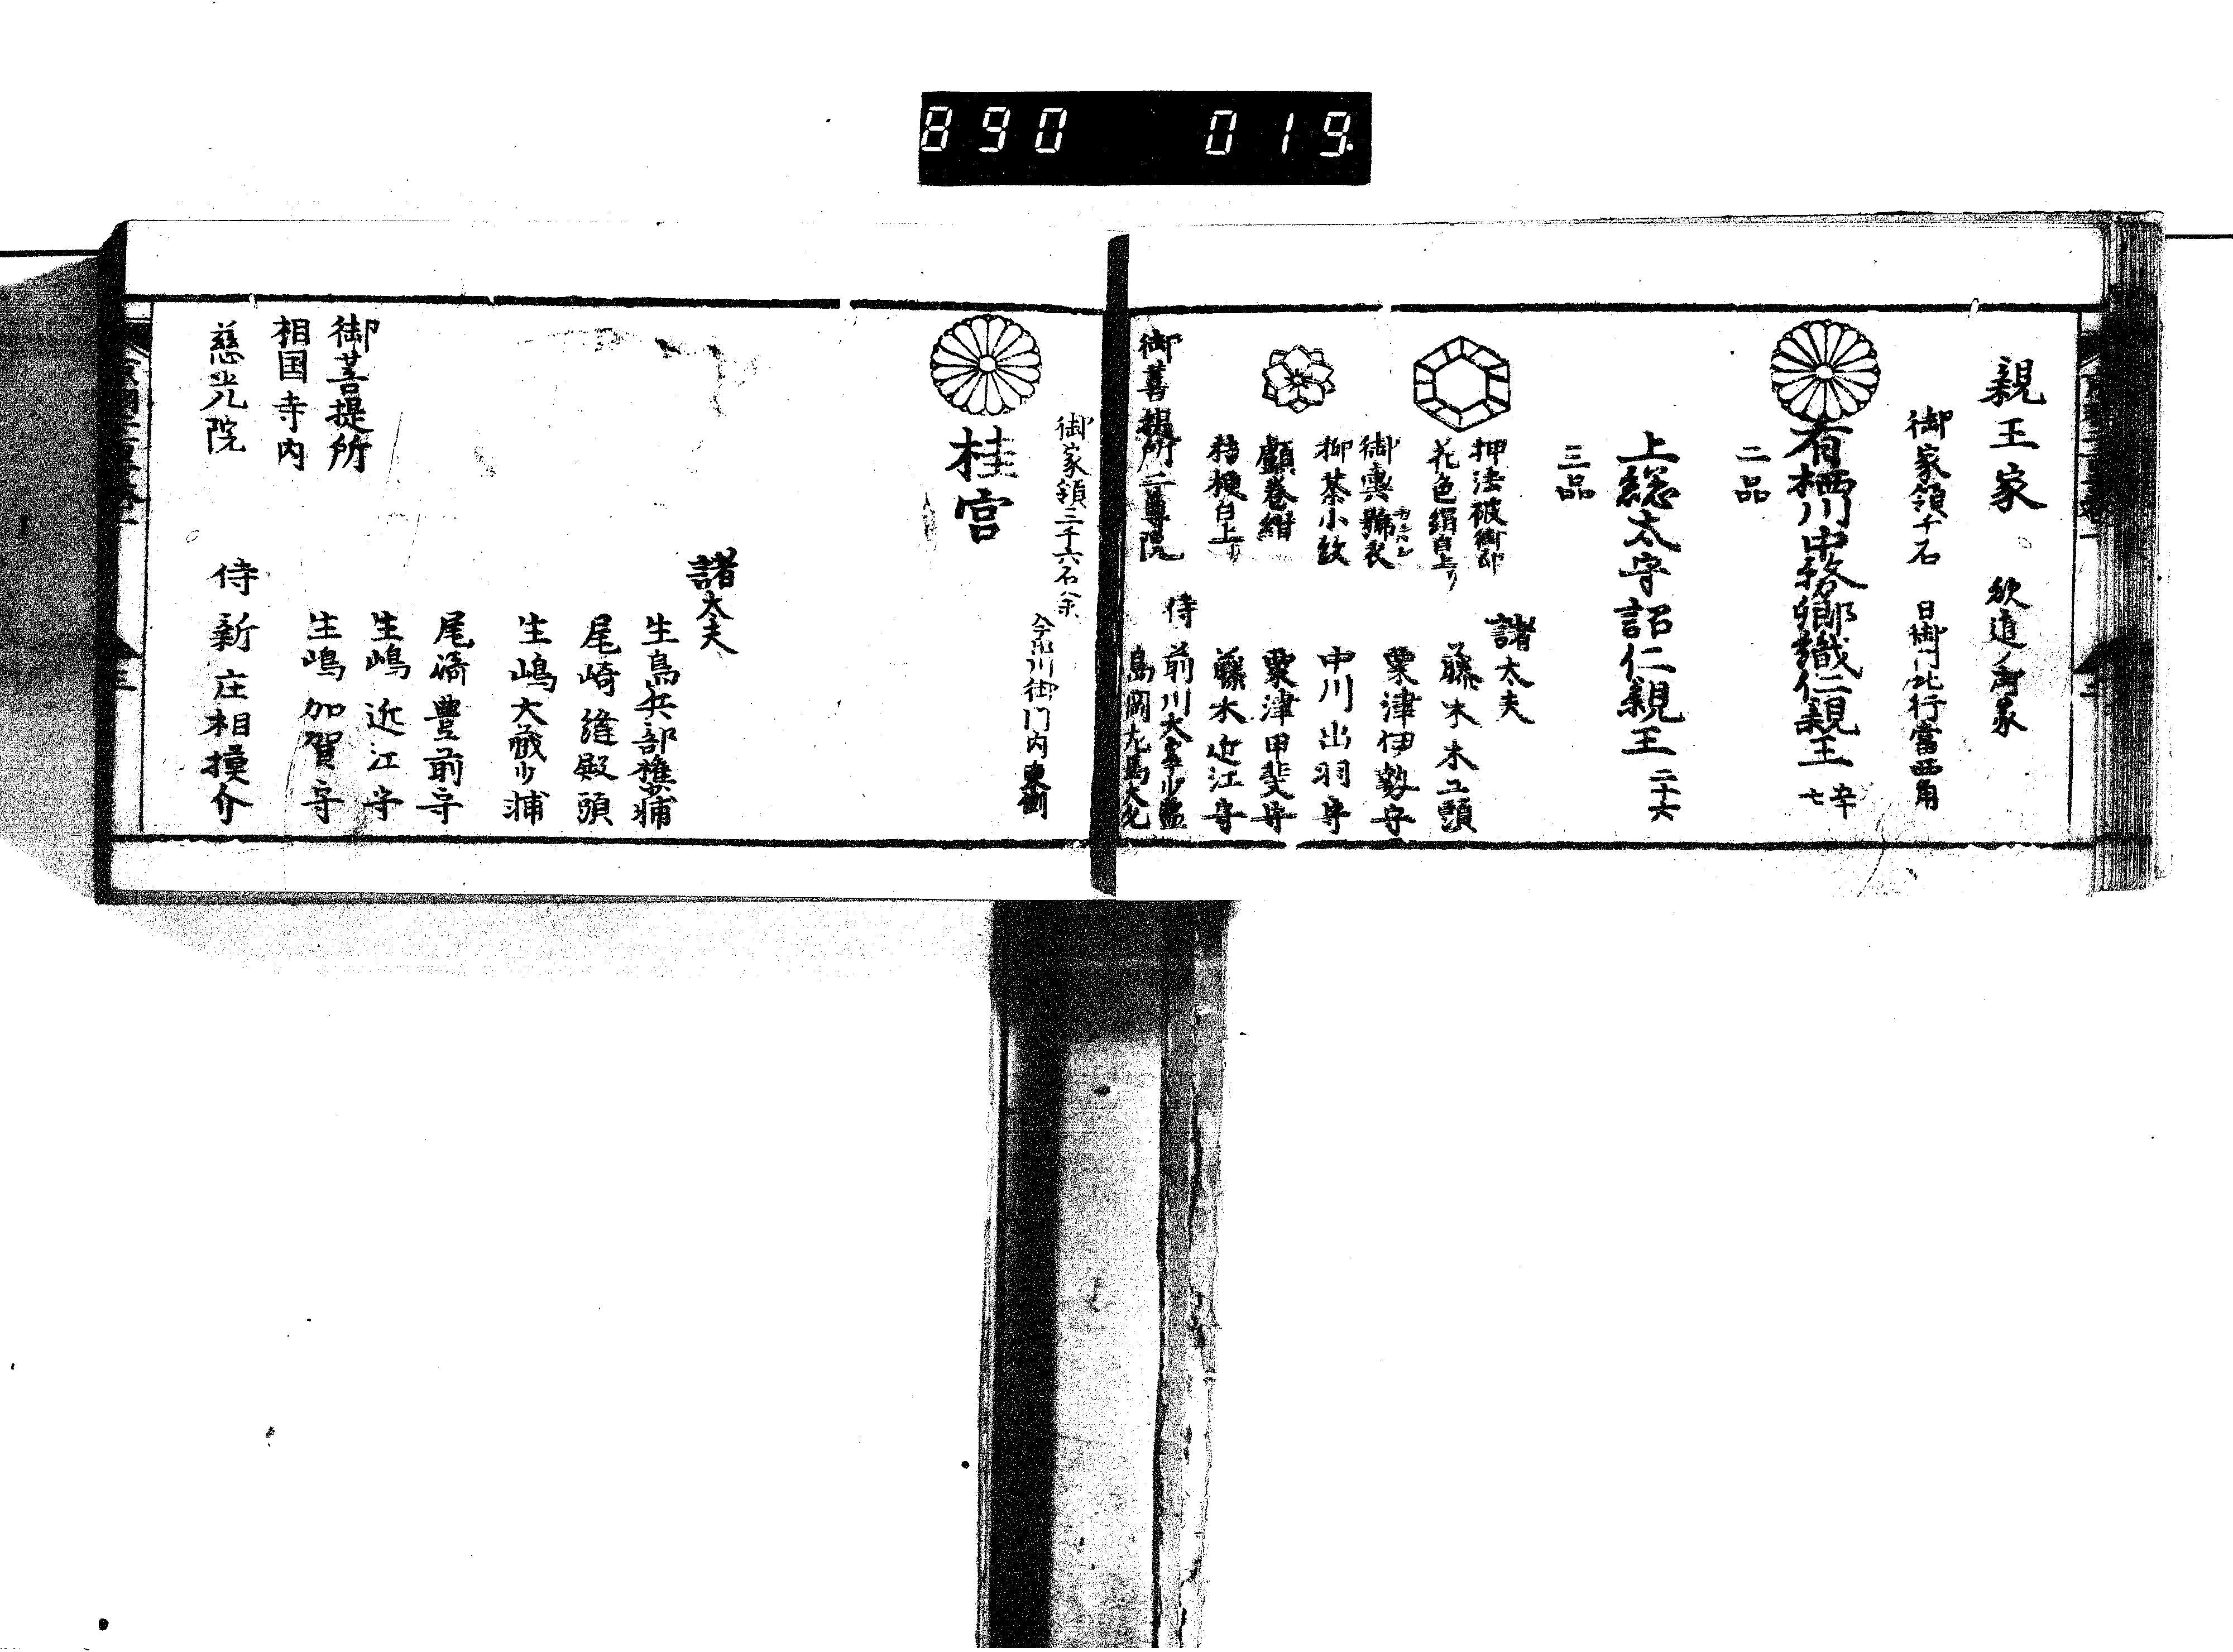 890 019
親王家 歌道ノ御家
御家領千石 日御門北行當西角
有栖川中務卿織仁親王 五十七
二品
上総太守韶仁親王 二十六
三品
押法被御印
花色絹白上リ
御輿舁衣
柳茶小紋
顱巻紺
桔梗白上リ
諸太夫
藤木木工頭
粟津伊勢守
中川出羽守
粟津甲斐守
藤木近江守
御菩提所二尊院
侍 前川大宰少監
島岡左馬大允
御家領三千六石余
今出川御門内東側
桂宮
諸太夫
生島兵部権少輔
尾崎縫殿頭
生嶋大蔵少輔
尾崎豊前守
生嶋近江守
生嶋加賀守
御菩提所
相国寺内
慈光院
侍 新庄相摸介